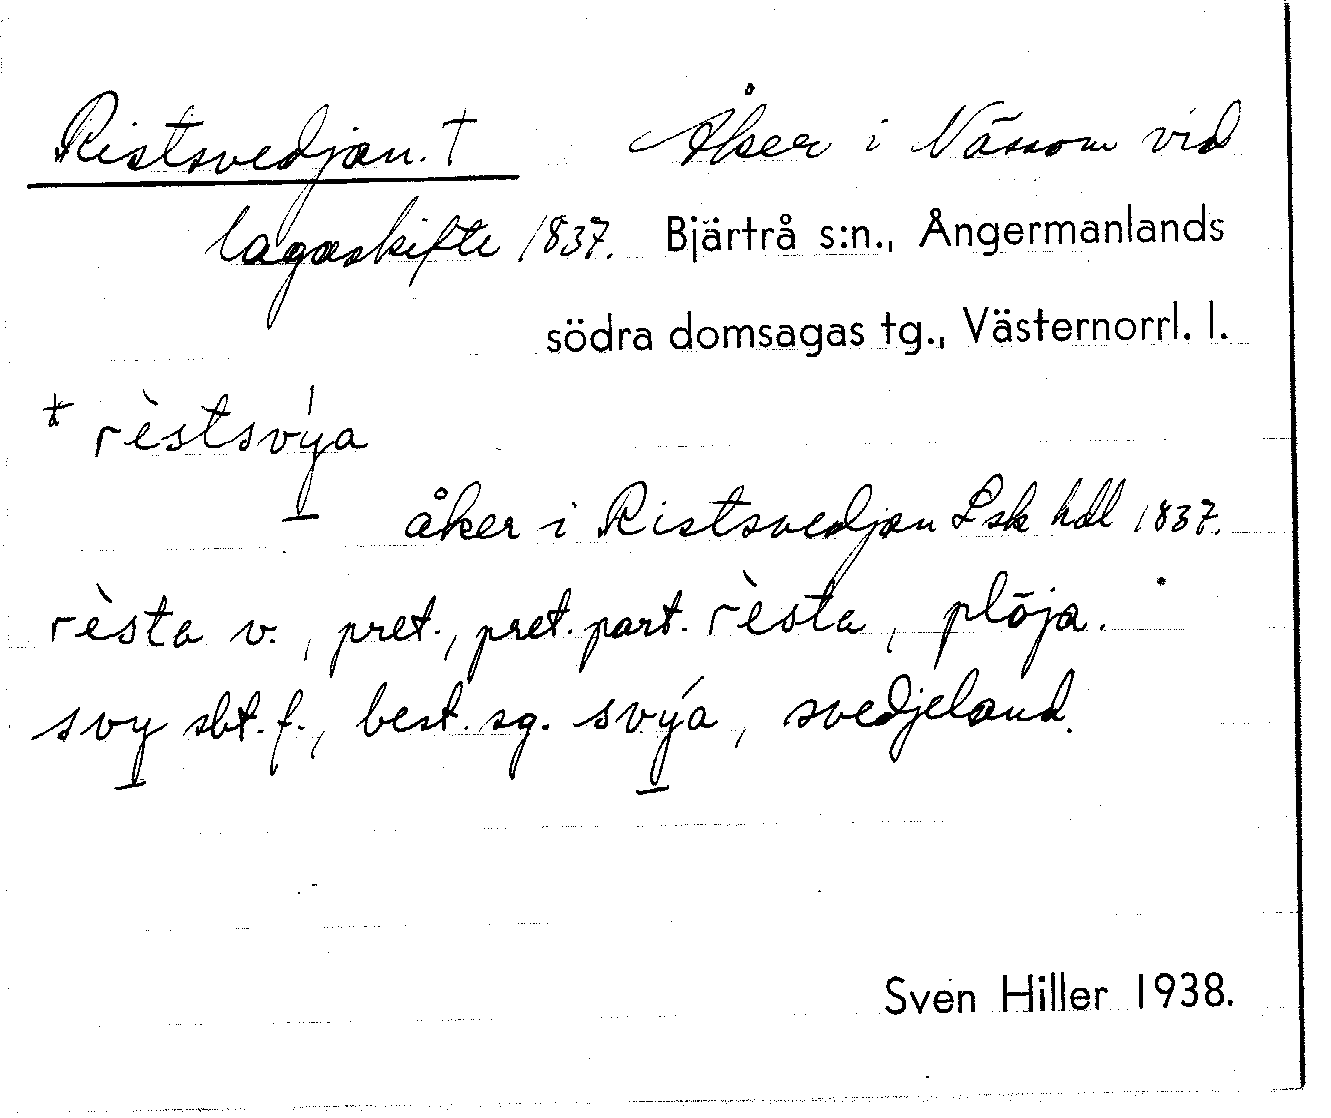 Ristsvedjan. † Åker i Nässom vid
lagaskifte 1837. Bjärtrå s:n., Ångermanlands
södra domsagas tg., Västernorrl. l.
* rèstsvýa
åker i Ristsvedjan Lsk hdl 1837.
rèsta v., pret., pret. part. rèsta, plöja.
svy sbt. f., best. sg. svýa, svedjeland.
Sven Hiller 1938.